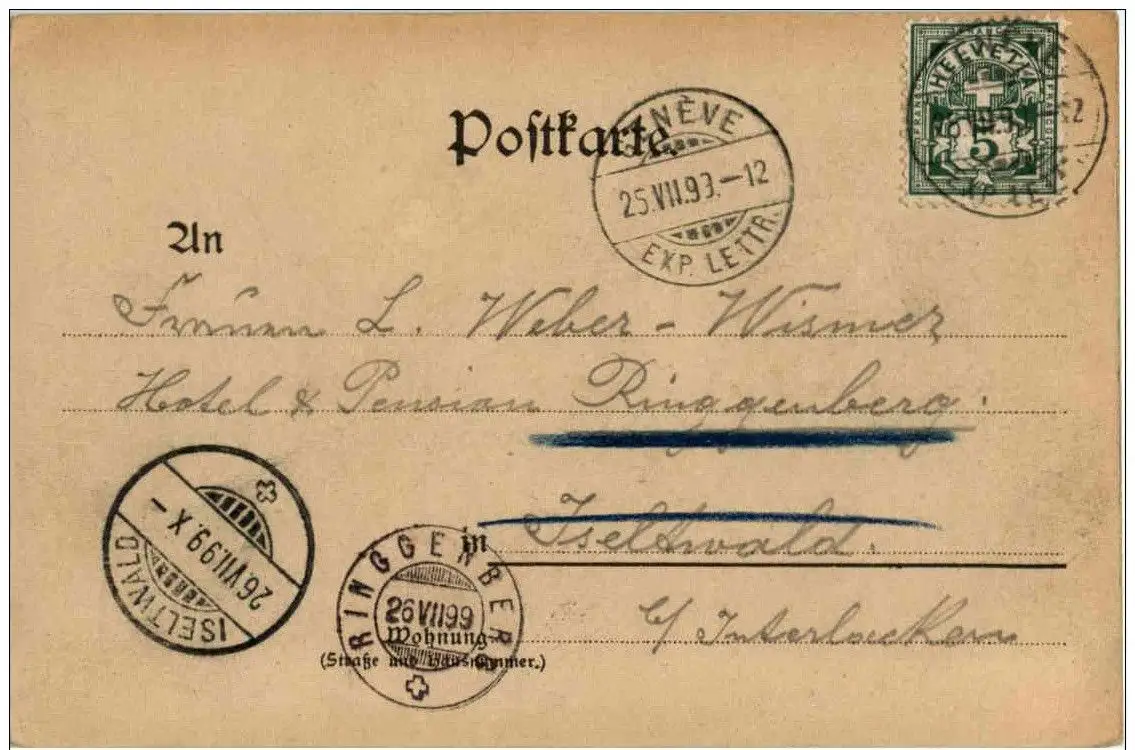 Postkarte.
GENÈVE
25.VII.99.–12
EXP. LETTR.
HELVETIA
5
An
Frauen L. Weber-Wismer
Hotel & Pension Ringgenberg.
in Iseltwald.
ISELTWALD
26.VII.99.X–
RINGGENBERG
26 VII 99
Wohnung
(Straße und Hausnummer.)
c/ Interlacken